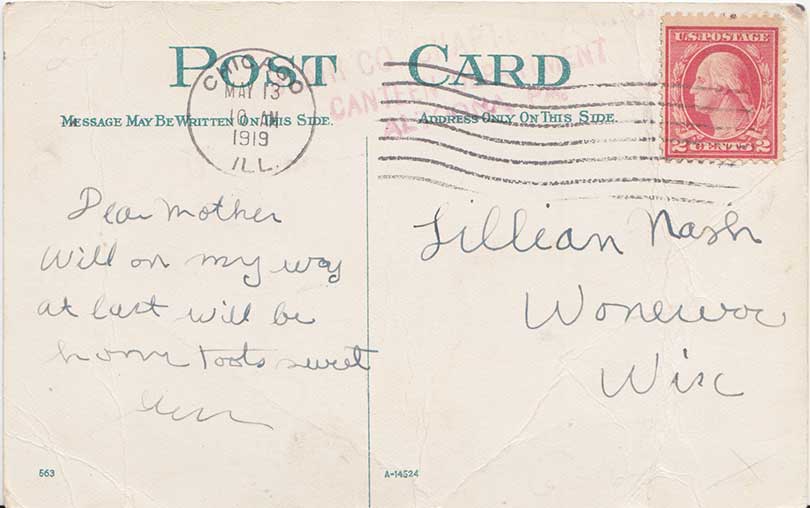 POST CARD
CHICAGO
MAY 13
10 AM
1919
ILL.
CANTEEN
ALTOONA
U.S. POSTAGE
2 CENTS 2
MESSAGE MAY BE WRITTEN ON THIS SIDE.
ADDRESS ONLY ON THIS SIDE.
Dear Mother
Will on my way
at last will be
home toots sweet
Lillian Nash
Wonewoc
Wisc
563
A-14524